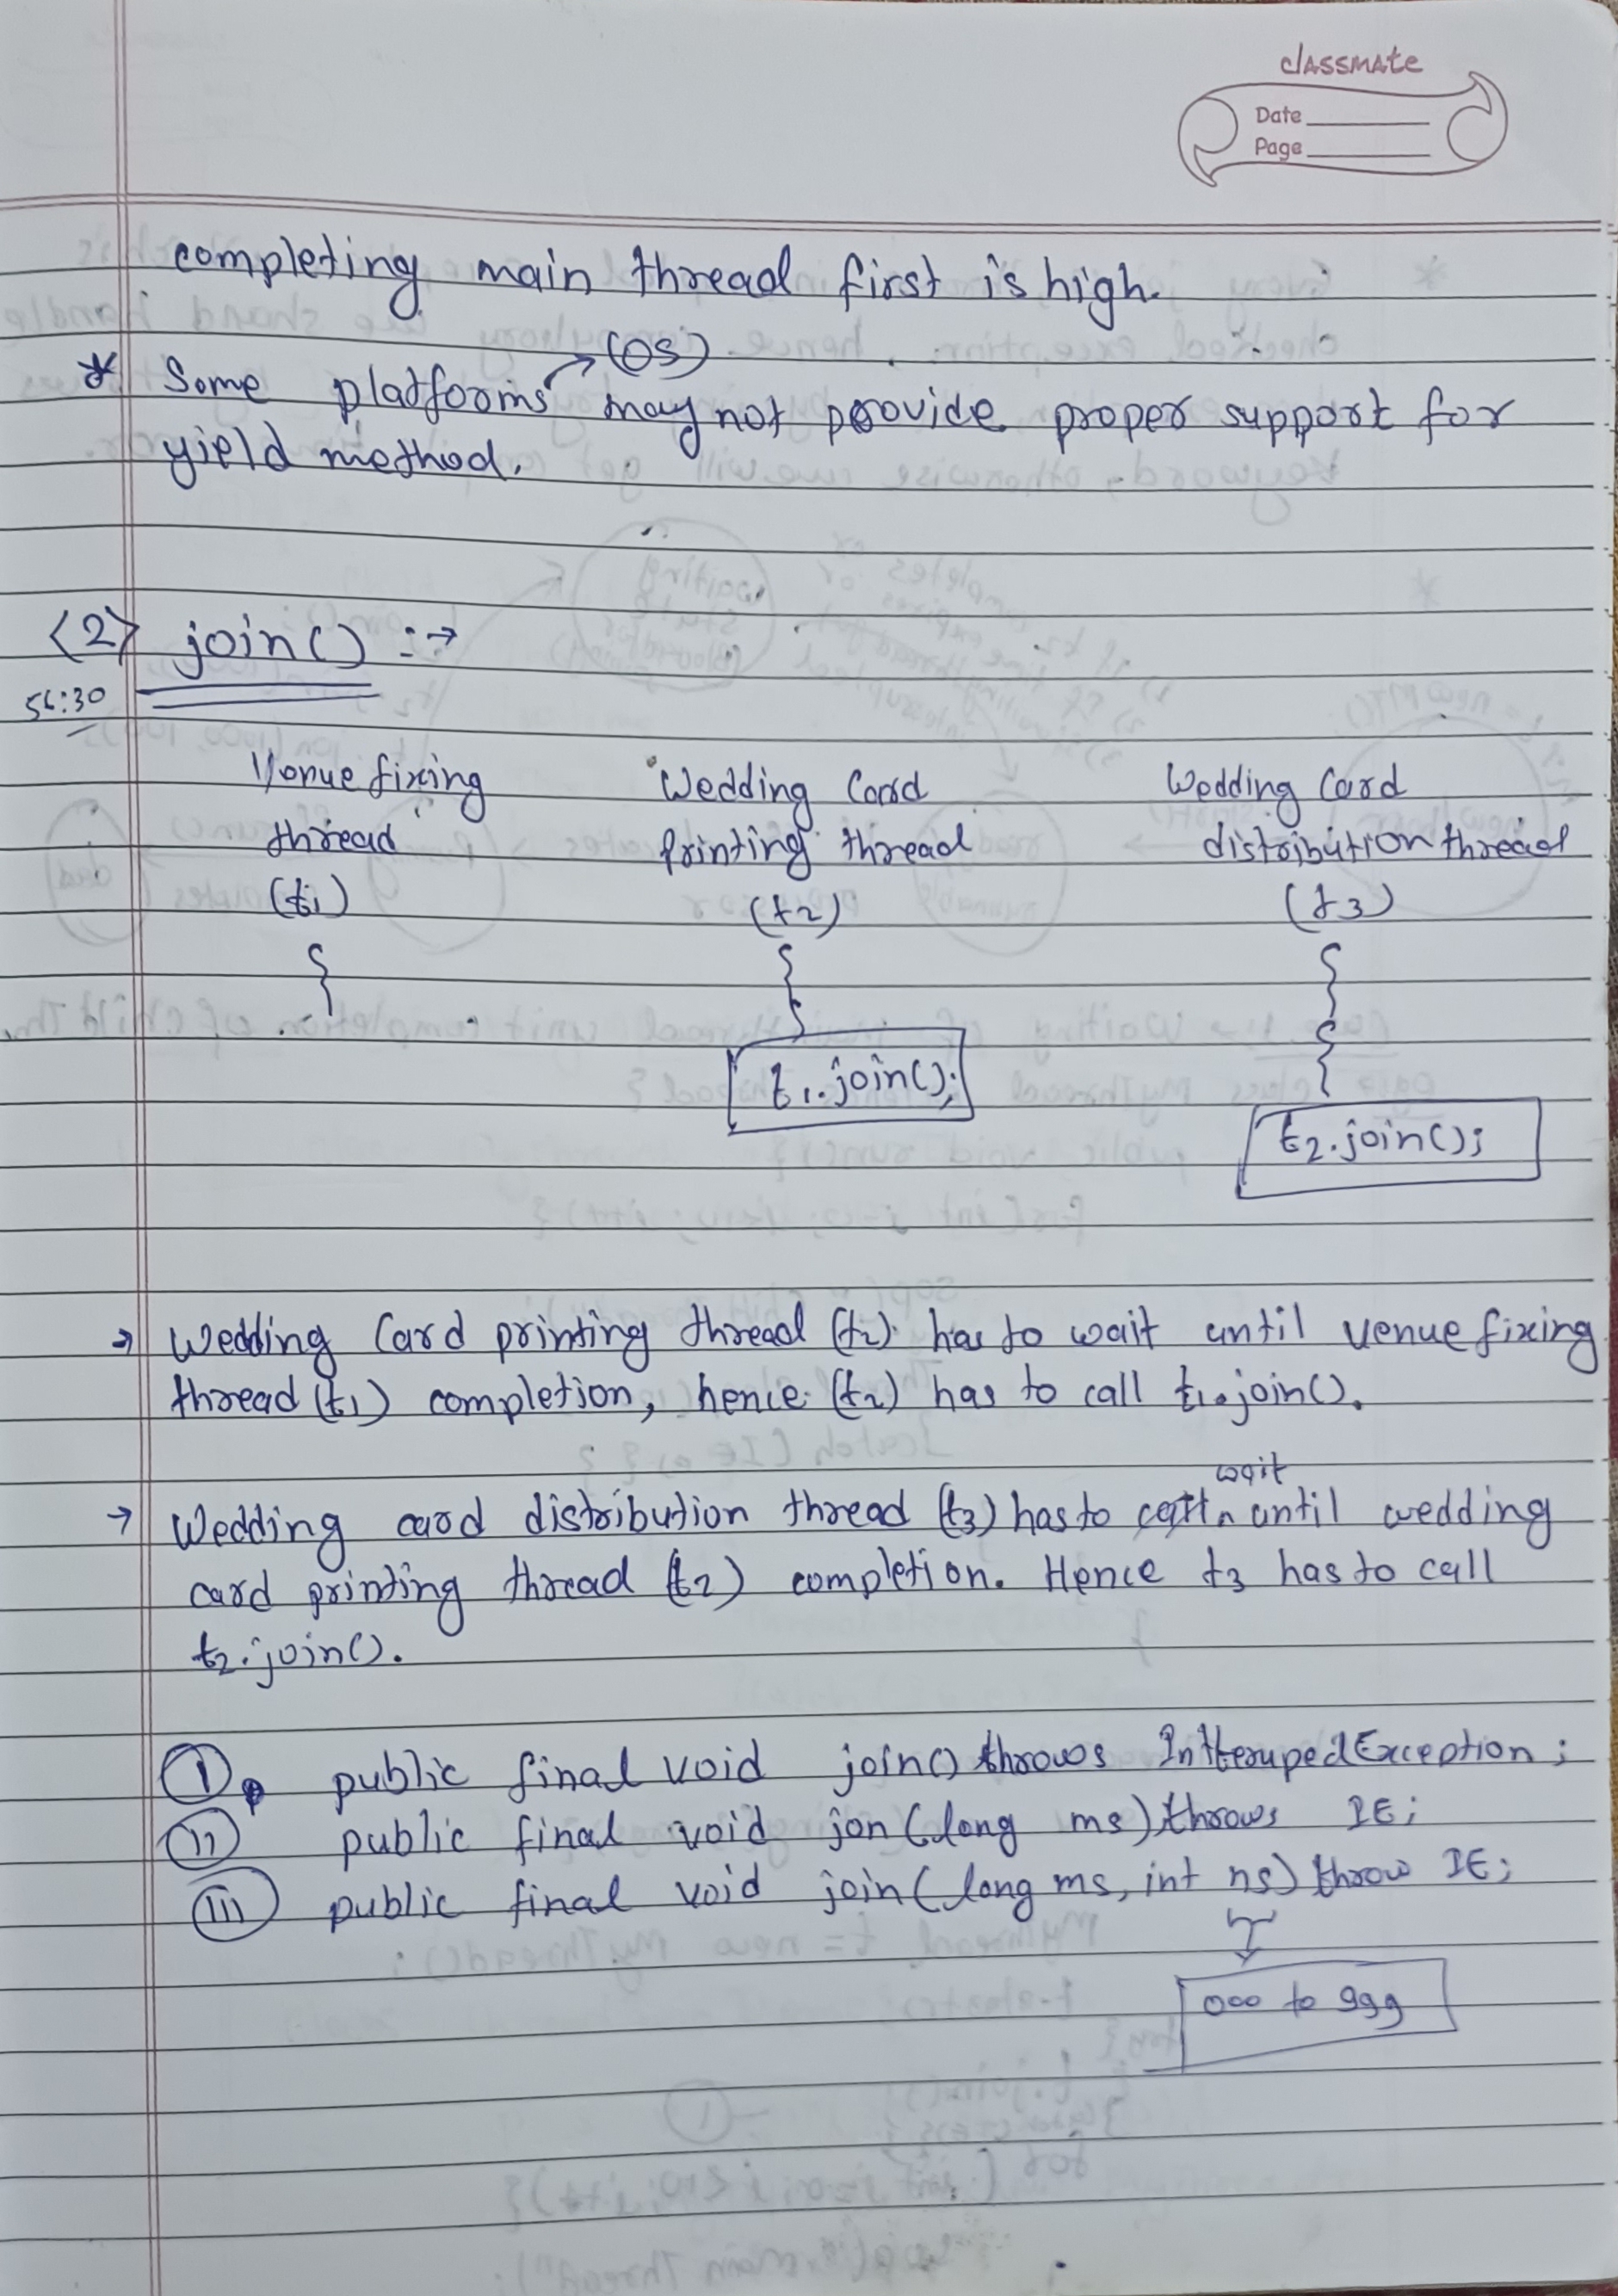 classmate
Date
Page
completing main thread first is high.
(OS)
* Some platforms may not provide proper support for
yield method.
<2> join() :→
56:30
Venue fixing Wedding Card Wedding Card
thread printing thread distribution thread
(t1) (t2) (t3)
t1.join();
t2.join();
→ Wedding Card printing thread (t2) has to wait until venue fixing
thread (t1) completion, hence (t2) has to call t1.join().
wait
→ Wedding card distribution thread (t3) has to call until wedding
card printing thread (t2) completion. Hence t3 has to call
t2.join().
(i) public final void join() throws IntterupedException;
(ii) public final void jon(long ms) throws IE;
(iii) public final void join(long ms, int ns) throw IE;
000 to 999